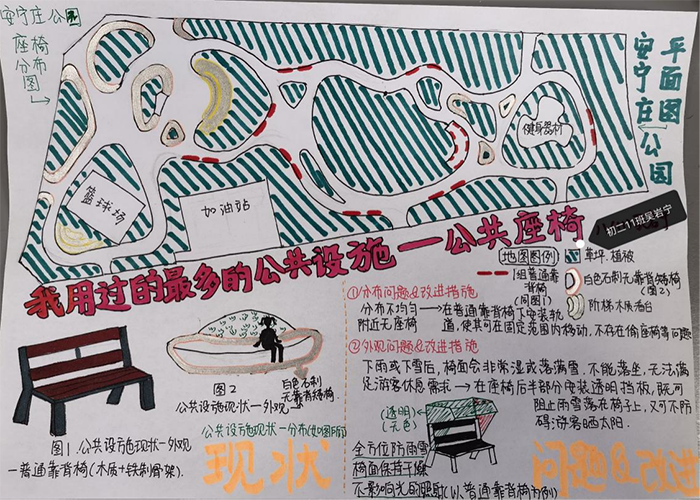 安宁庄公园
座椅
分布
图
平面图
安宁庄公园
健身器材
篮球场
加油站
初二11班吴岩宁
我用过的最多的公共设施—公共座椅
地图图例
草坪、植被
1组普通靠
背椅
(同图1)
白色石制无靠背矮椅
(图2)
阶梯木质看台
①分布问题&改进措施
分布不均匀→在普通靠背椅下安装轨
附近无座椅 道,使其可在固定范围内移动,不存在偷座椅等问题
②外观问题&改进措施
下雨或下雪后,椅面会非常湿或落满雪,不能落坐,无法满
足游客休息需求→在座椅后半部分安装透明挡板,既可
阻止雨雪落在椅子上,又可不防
碍游客晒太阳.
(透明)
(无色)
全方位防雨雪
椅面保持干燥
不影响光的照射(以普通靠背椅为例)
图2
白色石制
无靠背矮椅.
公共设施现状—外观
公共设施现状—分布(如图所示)
图1.公共设施现状—外观
—普通靠背椅(木质+铁制骨架).
现状
问题&改进